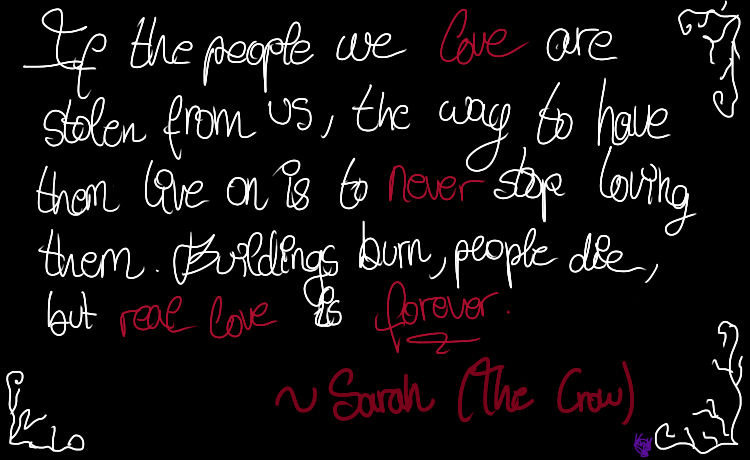 If the people we love are
stolen from us, the way to have
them live on is to never stop loving
them. Buildings burn, people die,
but real love is forever.
~ Sarah (The Crow)